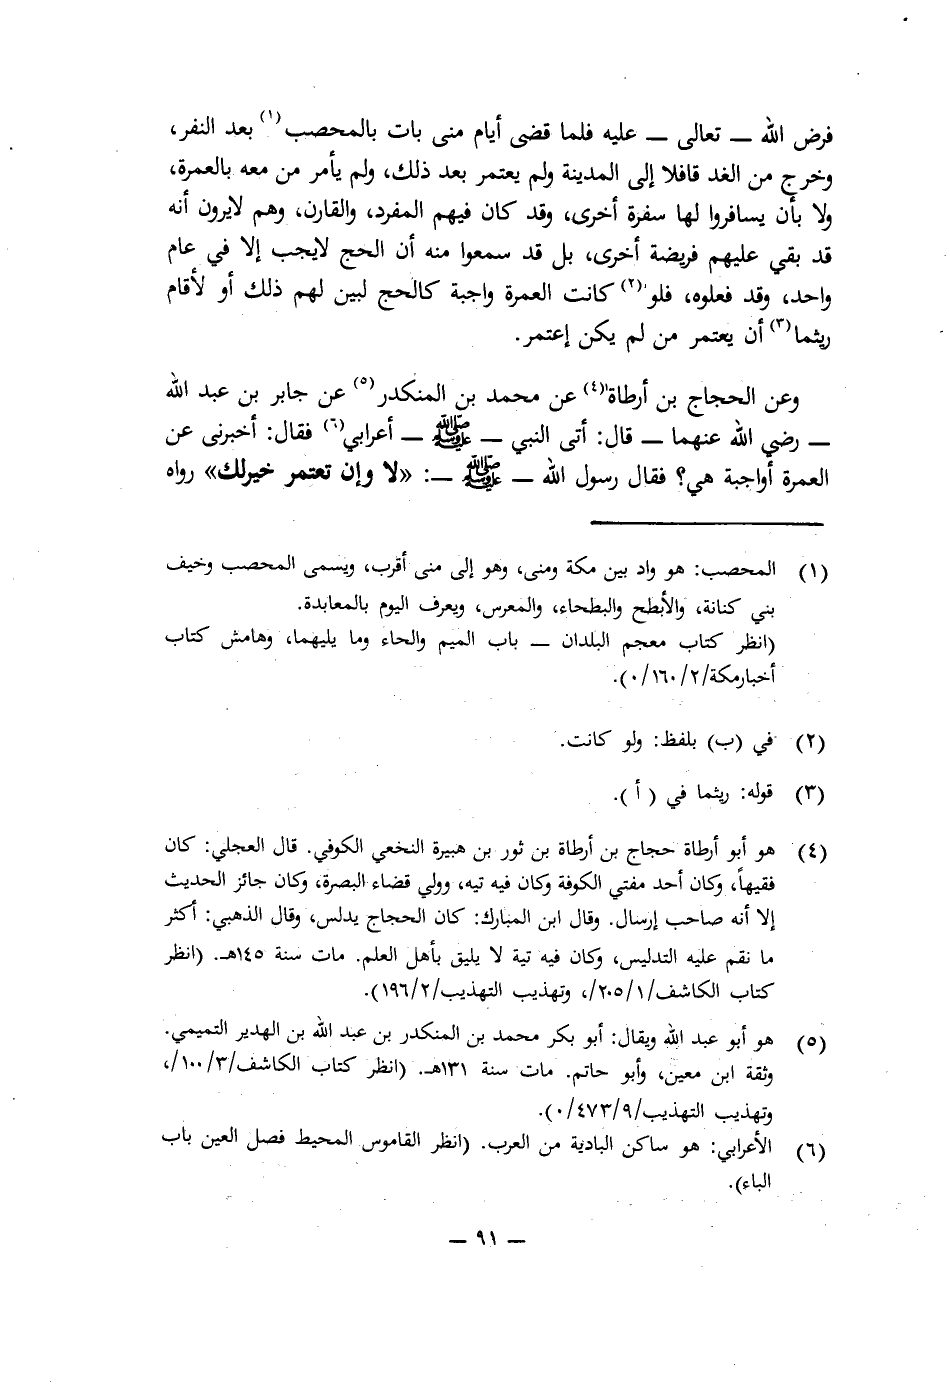 فرض الله ــ تعالى ــ عليه فلما قضى أيام منى بات بالمحصب(١) بعد النفر،
وخرج من الغد قافلا إلى المدينة ولم يعتمر بعد ذلك، ولم يأمر من معه بالعمرة،
ولا بأن يسافروا لها سفرة أخرى، وقد كان فيهم المفرد، والقارن، وهم لايرون أنه
قد بقي عليهم فريضة أخرى، بل قد سمعوا منه أن الحج لايجب إلا في عام
واحد، وقد فعلوه، فلو(٢) كانت العمرة واجبة كالحج لبين لهم ذلك أو لأقام
ريثما(٣) أن يعتمر من لم يكن إعتمر.
وعن الحجاج بن أرطاة(٤) عن محمد بن المنكدر(٥) عن جابر بن عبد الله
ــ رضي الله عنهما ــ قال: أتى النبي ــ ﷺ ــ أعرابي(٦) فقال: أخبرنى عن
العمرة أواجبة هي؟ فقال رسول الله ــ ﷺ ــ: «لا وإن تعتمر خيرلك» رواه
(١) المحصب: هو واد بين مكة ومنى، وهو إلى منى أقرب، ويسمى المحصب وخيف
بني كنانة، والأبطح والبطحاء، والمعرس، ويعرف اليوم بالمعابدة.
(انظر كتاب معجم البلدان ــ باب الميم والحاء وما يليهما، وهامش كتاب
أخبارمكة/١٦٠/٢/٠).
(٢) في (ب) بلفظ: ولو كانت.
(٣) قوله: ريثما في ( أ ).
(٤) هو أبو أرطاة حجاج بن أرطاة بن ثور بن هبيرة النخعي الكوفي. قال العجلي: كان
فقيهاً، وكان أحد مفتي الكوفة وكان فيه تيه، وولي قضاء البصرة، وكان جائز الحديث
إلا أنه صاحب إرسال. وقال ابن المبارك: كان الحجاج يدلس، وقال الذهبي: أكثر
ما نقم عليه التدليس، وكان فيه تية لا يليق بأهل العلم. مات سنة ١٤٥هـ. (انظر
كتاب الكاشف/٢٠٥/١/، وتهذيب التهذيب/١٩٦/٢).
(٥) هو أبو عبد الله ويقال: أبو بكر محمد بن المنكدر بن عبد الله بن الهدير التميمي.
وثقة ابن معين، وأبو حاتم. مات سنة ١٣١هـ. (انظر كتاب الكاشف/١٠٠/٣/،
وتهذيب التهذيب/٤٧٣/٩/٠).
(٦) الأعرابي: هو ساكن البادية من العرب. (انظر القاموس المحيط فصل العين باب
الباء).
ــ ٩١ ــ